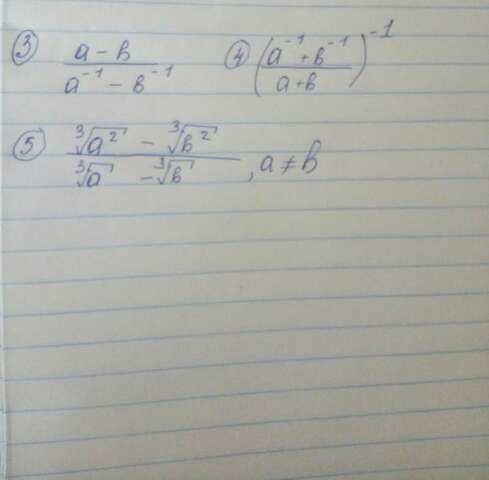 ③ (a - b)/(a⁻¹ - b⁻¹) ④ ((a⁻¹ + b⁻¹)/(a + b))⁻¹
⑤ (∛a² - ∛b²)/(∛a - ∛b), a ≠ b